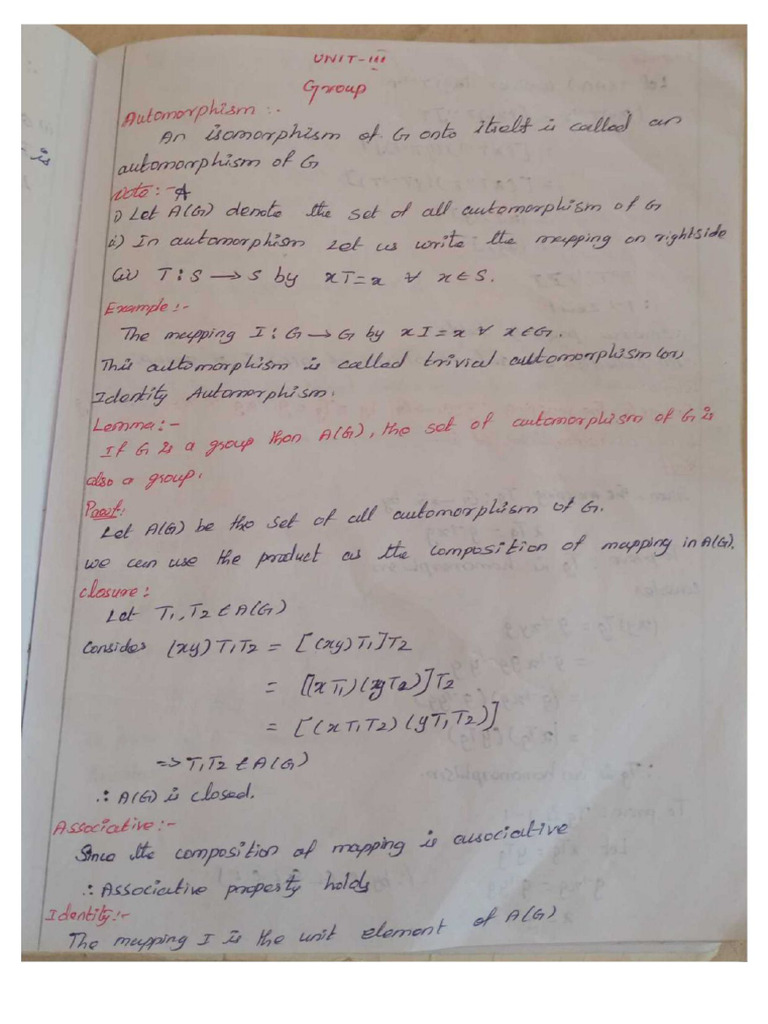 UNIT-III
Group
Automorphism :-
An isomorphism of G onto itself is called an
automorphism of G
Note:-
i) Let A(G) denote the set of all automorphism of G
ii) In automorphism Let us write the mapping on rightside
(ii) T : S → S by xT = x ∀ x ∈ S.
Example:-
The mapping I : G → G by xI = x ∀ x ∈ G.
This automorphism is called trivial automorphism (or)
Identity Automorphism.
Lemma:-
If G is a group then A(G), the set of automorphism of G is
also a group.
Proof:
Let A(G) be the set of all automorphism of G.
we can use the product as the composition of mapping in A(G).
closure:
Let T₁, T₂ ∈ A(G)
Consider (xy) T₁T₂ = [(xy)T₁]T₂
= [(xT₁)(yT₂)]T₂
= [(xT₁T₂)(yT₁T₂)]
=> T₁T₂ ∈ A(G)
∴ A(G) is closed.
Associative:-
Since the composition of mapping is associative
∴ Associative property holds
Identity:-
The mapping I is the unit element of A(G)